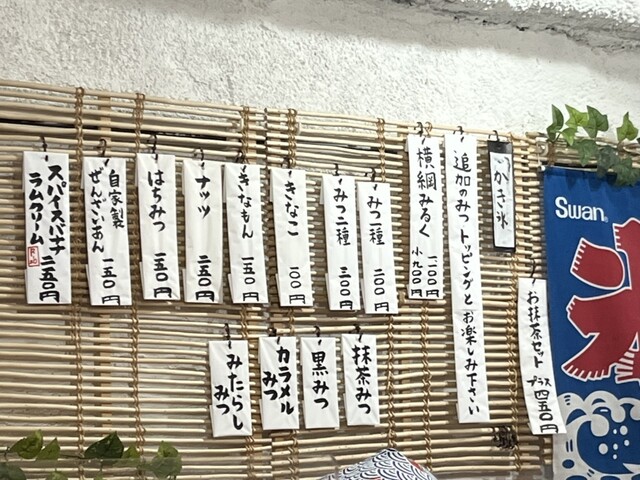 Swan
氷
かき氷
お抹茶セット
プラス四五〇円
追加のみつトッピングとお楽しみ下さい
横綱みるく
一一〇〇円
小九〇〇円
みつ一種 二〇〇円
みつ二種 三〇〇円
きなこ 一〇〇円
きなもん 一五〇円
ナッツ 二五〇円
はちみつ 一五〇円
自家製
ぜんざいあん 一五〇円
スパイスバナナ
ラムクリーム
二五〇円
抹茶みつ
黒みつ
カラメル
みつ
みたらし
みつ